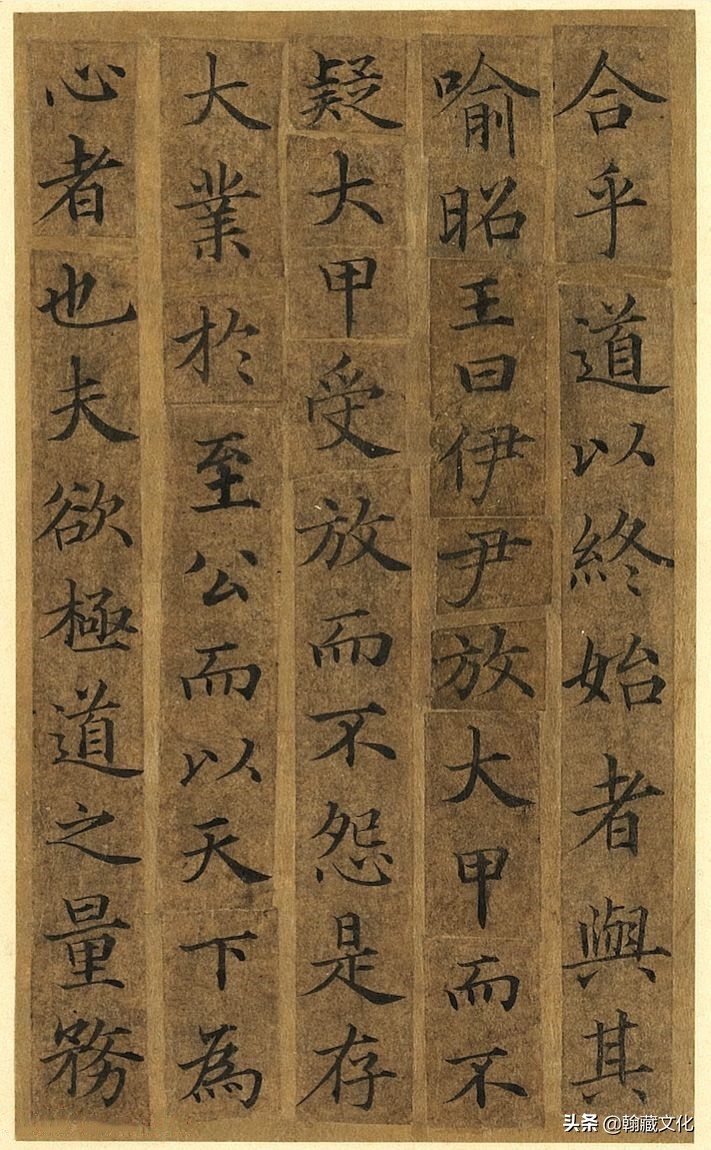 合乎道以終始者與其
喻昭王曰伊尹放大甲而不
疑大甲受放而不怨是存
大業於至公而以天下為
心者也夫欲極道之量務
头条 @翰藏文化